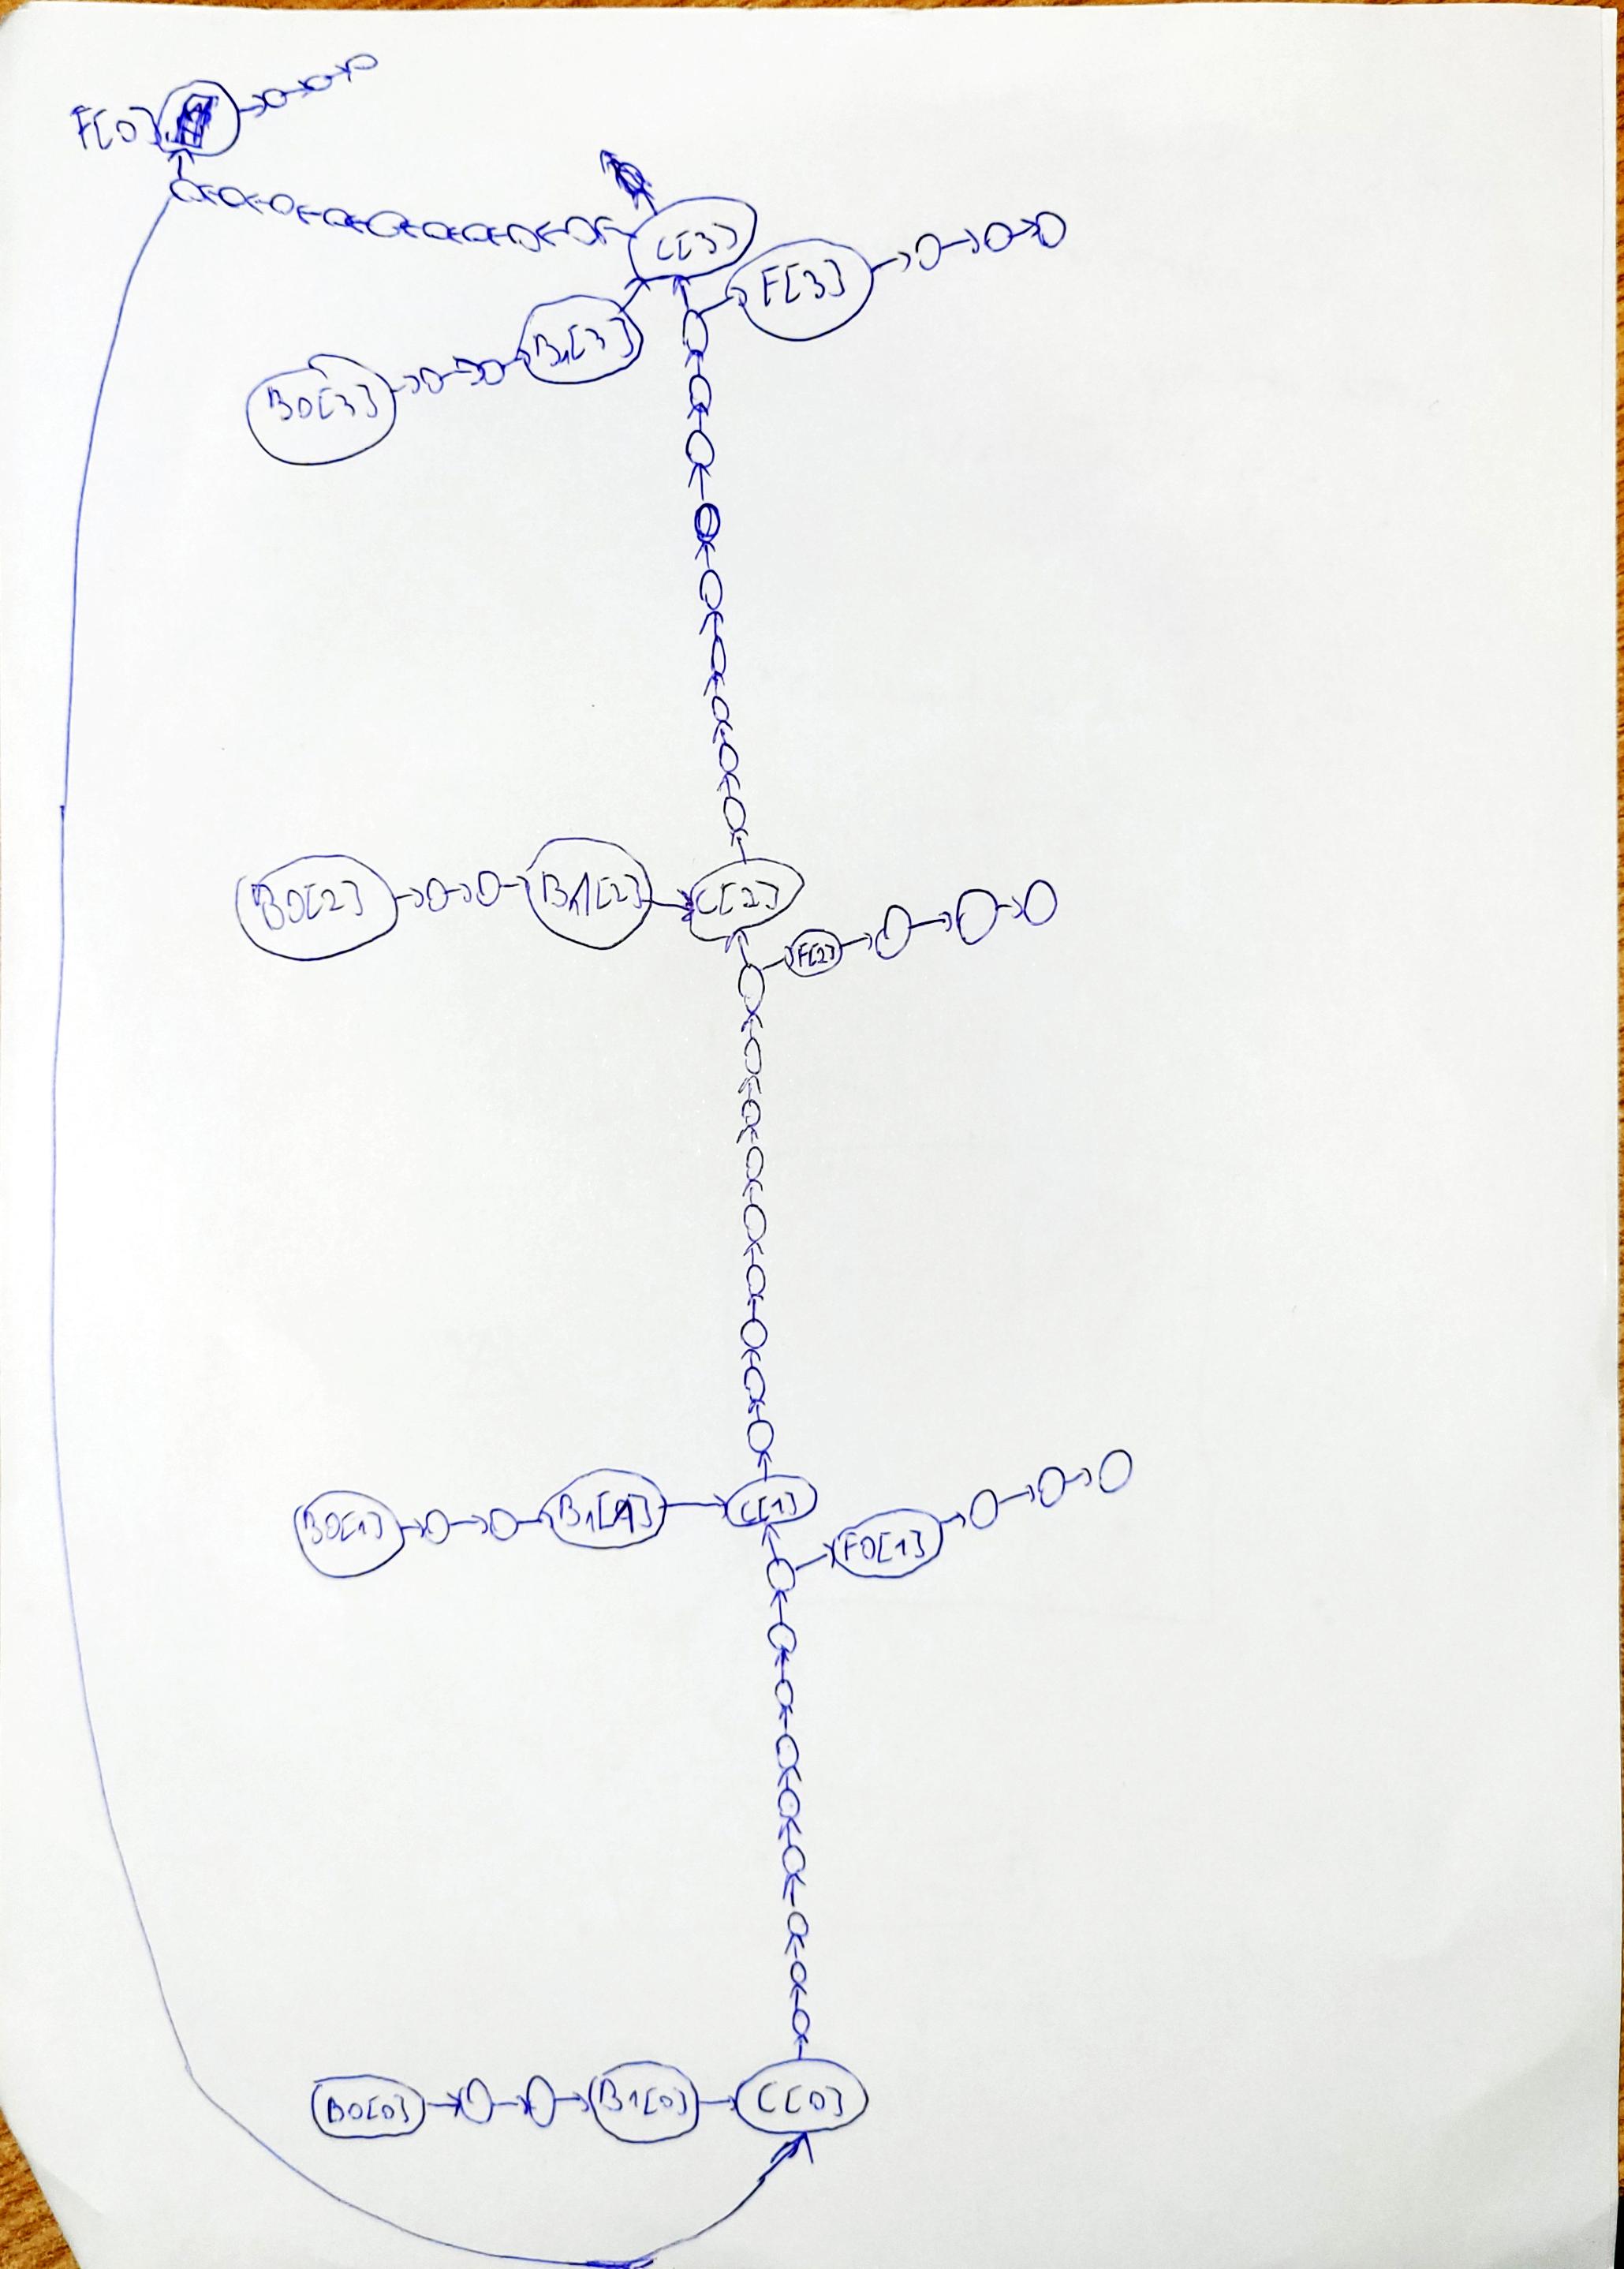 F[0]
C[3]
F[3]
B1[3]
B0[3]
B0[2]
B1[2]
C[2]
F[2]
B0[1]
B1[1]
C[1]
F0[1]
B0[0]
B1[0]
C[0]